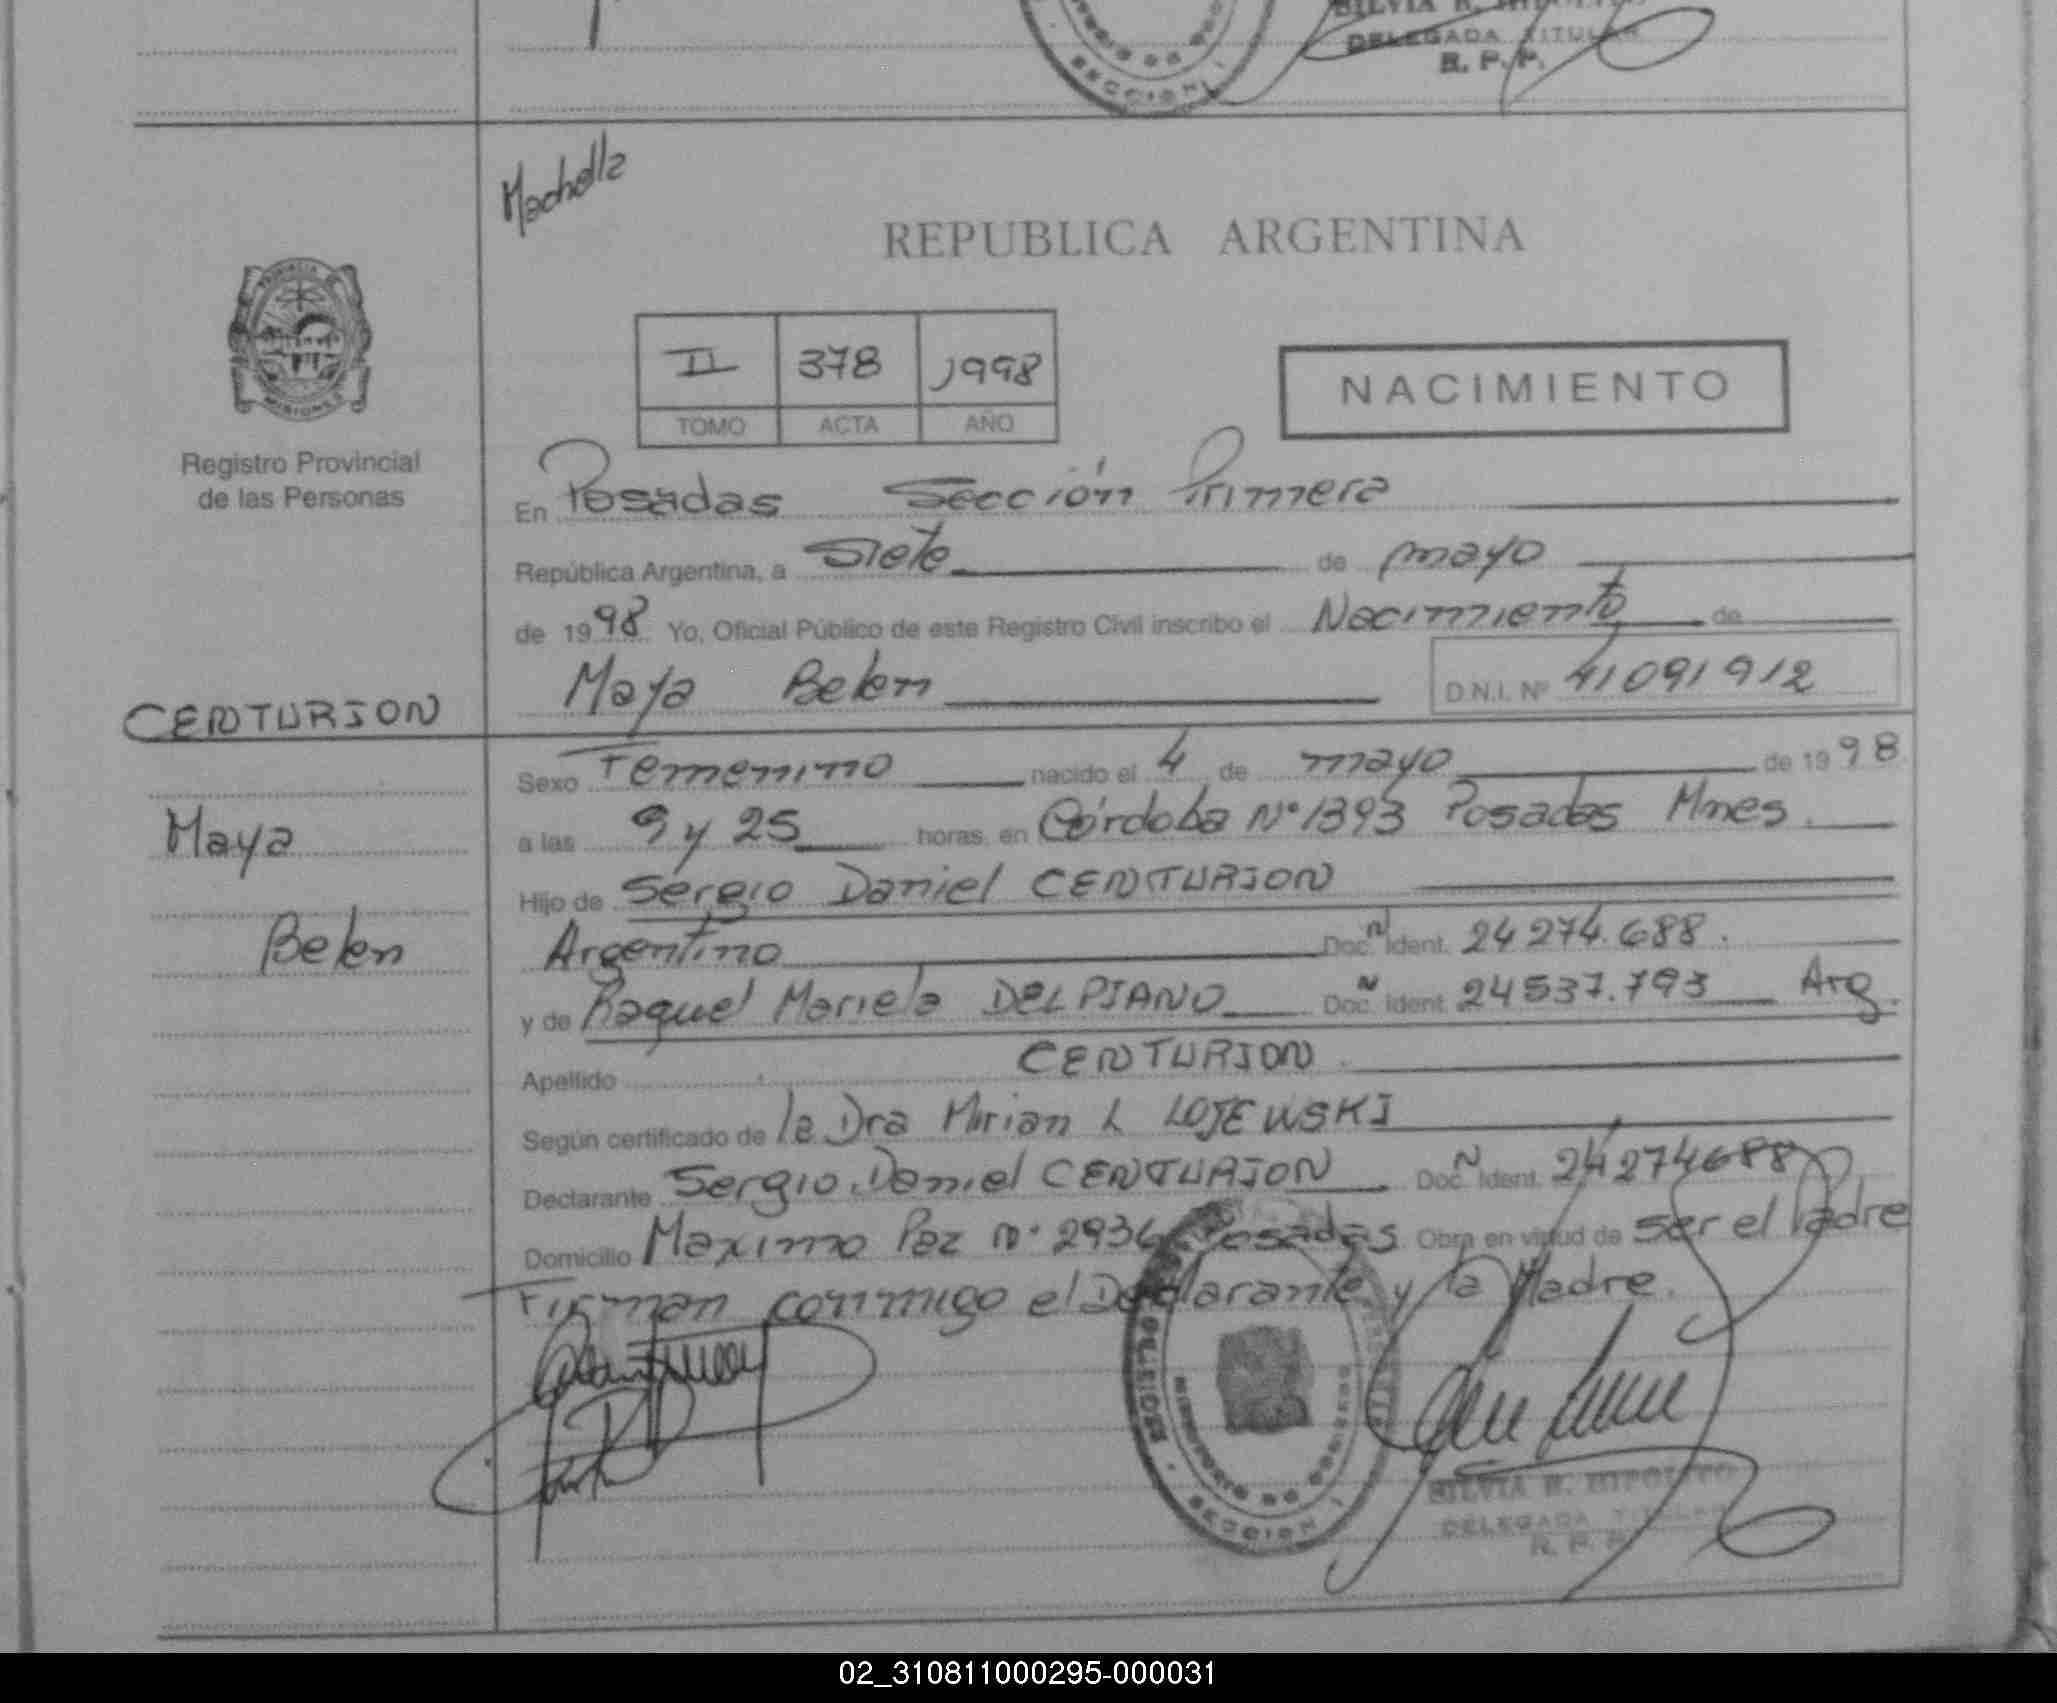 SILVIA R. HIPOLITO
DELEGADA TITULAR
R. P. P.
SECCION I
REPUBLICA ARGENTINA
PROVINCIA DE
MISIONES
Registro Provincial
de las Personas
II 378 1998
TOMO ACTA AÑO
NACIMIENTO
En Posadas Sección Primera
República Argentina, a Siete de mayo
de 1998 Yo, Oficial Público de este Registro Civil inscribo el Nacimiento de
Maya Belen D.N.I. Nº 41091912
CENTURION
Maya
Belen
Sexo Femenino nacido el 4 de mayo de 1998
a las 9 y 25 horas, en Córdoba Nº 1393 Posadas Mnes.
Hijo de Sergio Daniel CENTURION
Argentino Doc. Ident. 24274.688.
y de Raquel Mariela DELPIANO Doc. Ident. 24537.793 Arg.
Apellido CENTURION
Según certificado de la Dra Mirian L LOJEWSKI
Declarante Sergio Daniel CENTURION Doc. Ident. 24274688
Domicilio Maximo Paz Nº 2936 Posadas Obra en virtud de ser el Padre
Firman conmigo el Declarante y la Madre.
SECCION I
SILVIA R. HIPOLITO
DELEGADA TITULAR
R. P. P.
02_310811000295-000031